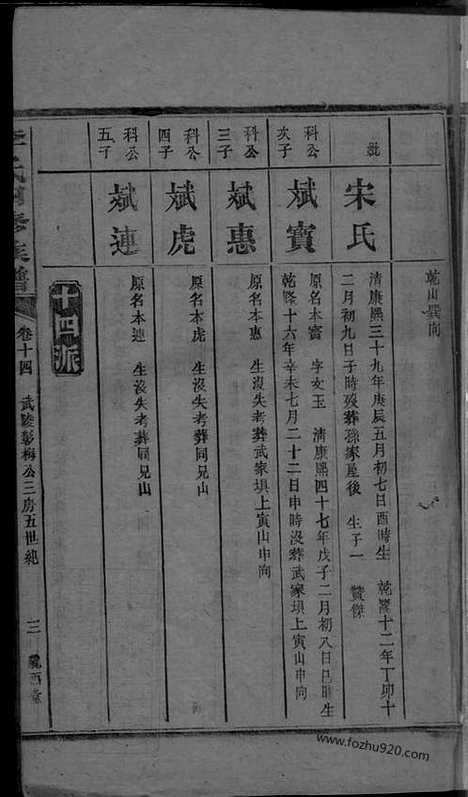 乾山巽向
妣
宋氏
清康熙三十九年庚辰五月初七日酉時生 乾隆十二年丁卯十
二月初九日子時歿葬孫家屋後 生子一 贊傑
科公
次子
斌寶
原名本寶 字文玉 清康熙四十七年戊子二月初八日巳時生
乾隆十六年辛未七月二十二日申時沒葬武家塤上寅山申向
科公
三子
斌惠
原名本惠 生沒失考葬武家塤上寅山申向
科公
四子
斌虎
原名本虎 生沒失考葬同兄山
科公
五子
斌連
原名本連 生沒失考葬同兄山
十四派
李氏 修族譜
卷十四 武陵彭梅公三房五世紀
三
隴西堂
www.fozhu920.com